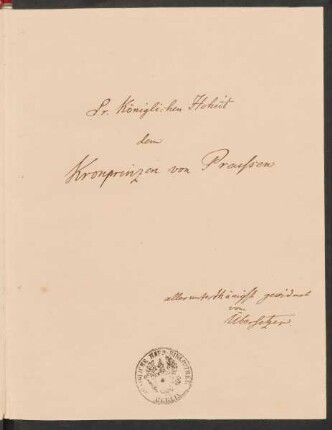 Sr. Königlichen Hoheit
dem
Kronprinzen von Preussen
allerunterthänigst gewidmet
vom
Übersetzer
BERLIN